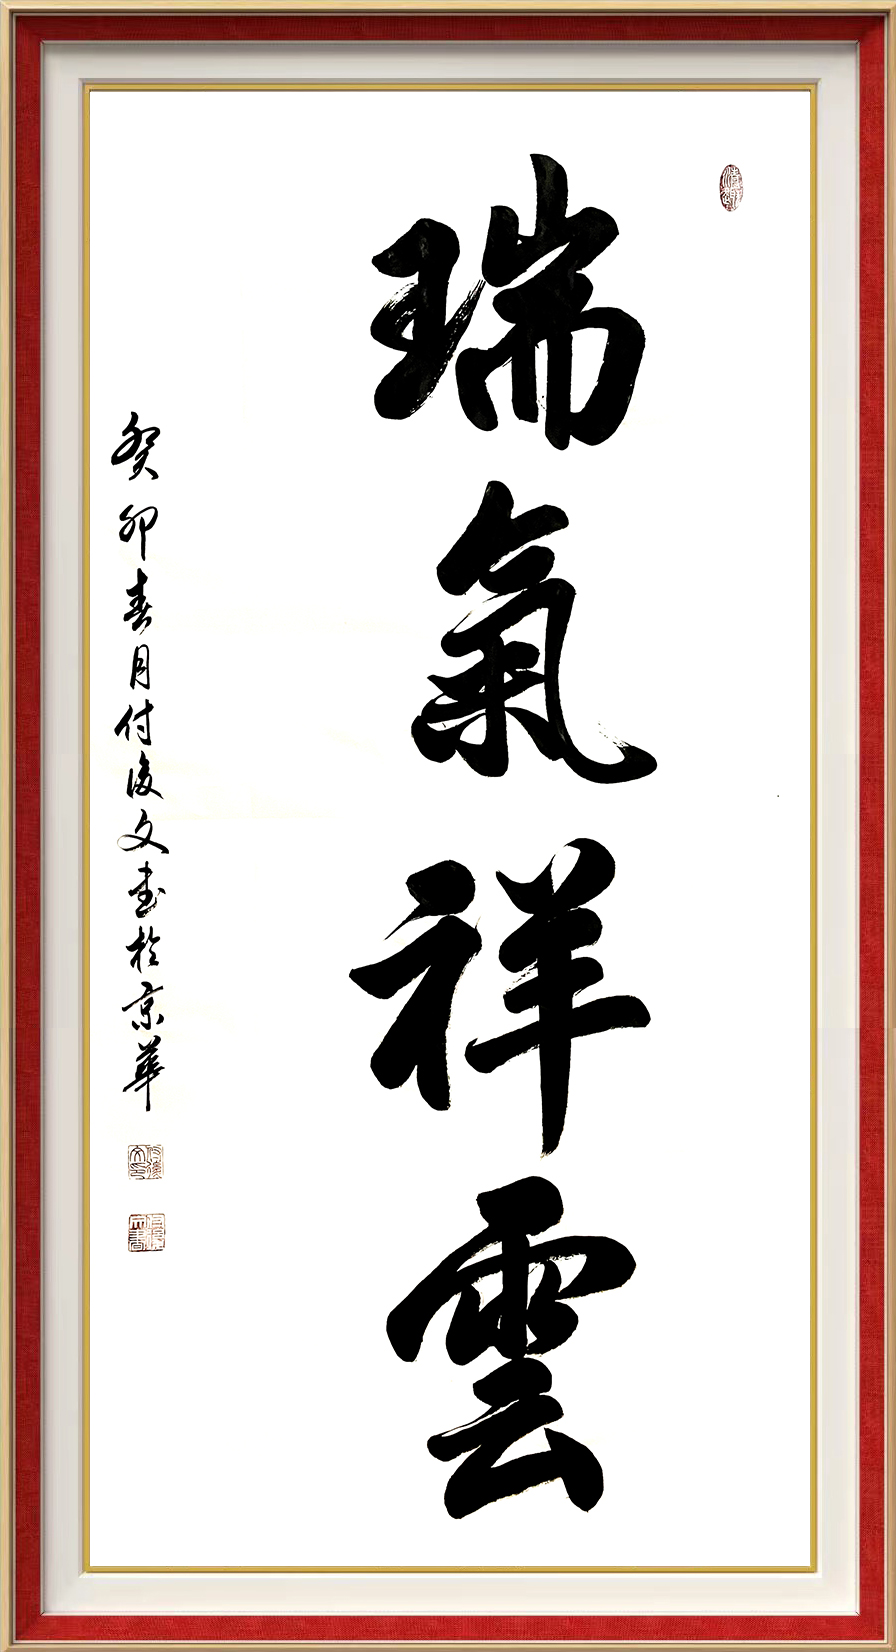 瑞氣祥雲
癸卯春月付俊文書於京華